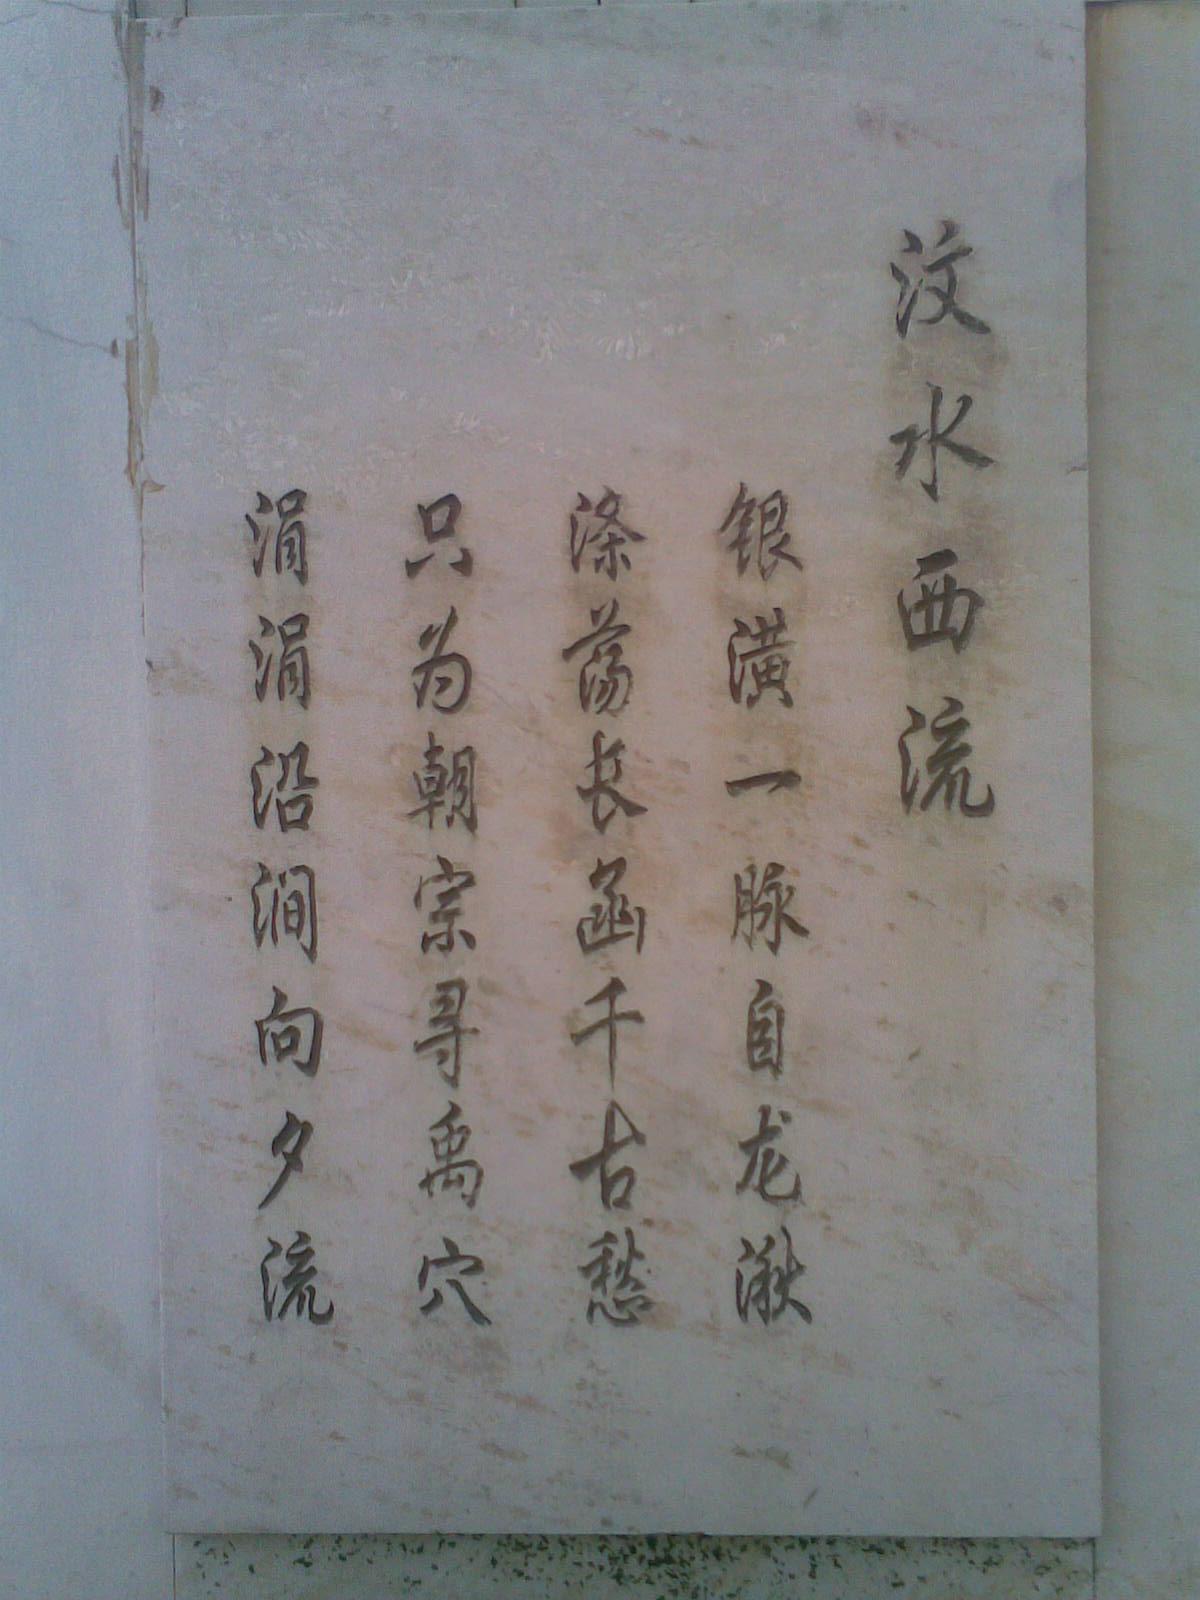 汶水西流
银潢一脉自龙湫
涤荡长函千古愁
只为朝宗寻禹穴
涓涓沿涧向夕流